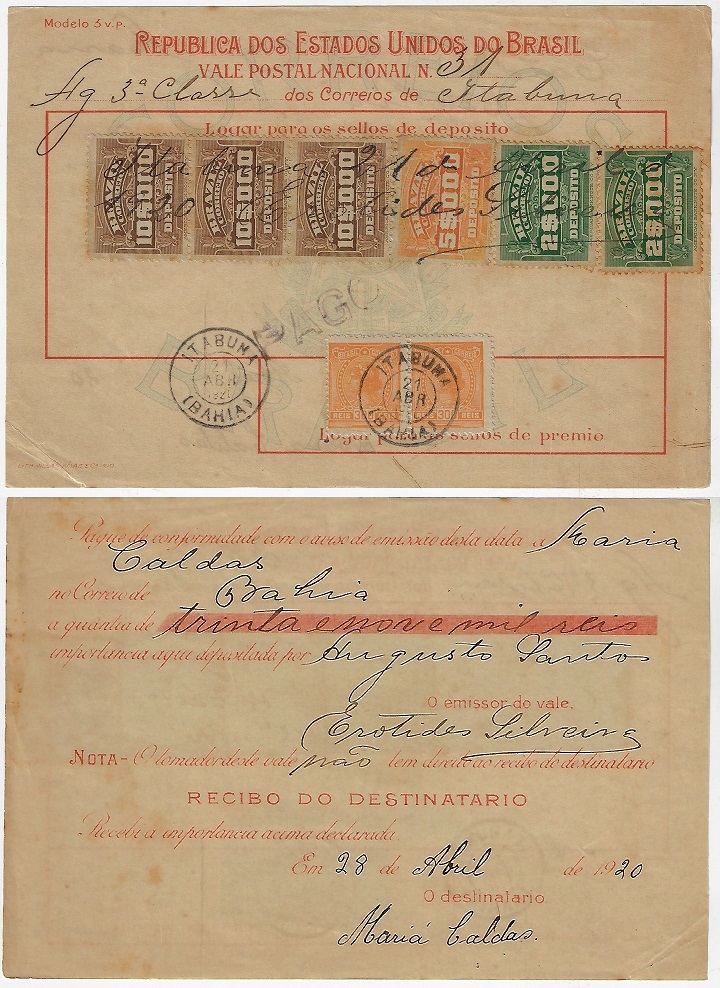 Modelo 3 v.p.
REPUBLICA DOS ESTADOS UNIDOS DO BRASIL
VALE POSTAL NACIONAL N. 31
Ag 3ª Classe dos Correios de Itabuna
Logar para os sellos de deposito
BRAZIL CORREIO 10$000 DEPOSITO
BRAZIL CORREIO 10$000 DEPOSITO
BRAZIL CORREIO 10$000 DEPOSITO
BRAZIL CORREIO 5$000 DEPOSITO
BRAZIL CORREIO 2$000 DEPOSITO
BRAZIL CORREIO 2$000 DEPOSITO
Itabuna 21 de
1920 Erotides
PAGO
ITABUNA
21
ABR
(BAHIA)
BRASIL CORREIO
REIS 30
ITABUNA
21
ABR
(BAHIA)
Logar para os sellos de premio
Pague de conformidade com o aviso de emissão desta data a Maria
Caldas
no Correio de Bahia
a quantia de trinta e nove mil reis
importancia aqui depositada por Augusto Santos
O emissor do vale,
Erotides Silveira
NOTA - O tomador deste vale não tem direito ao recibo do destinatario
RECIBO DO DESTINATARIO
Recebi a importancia acima declarada
Em 28 de Abril de 1920
O destinatario
Mariá Caldas.